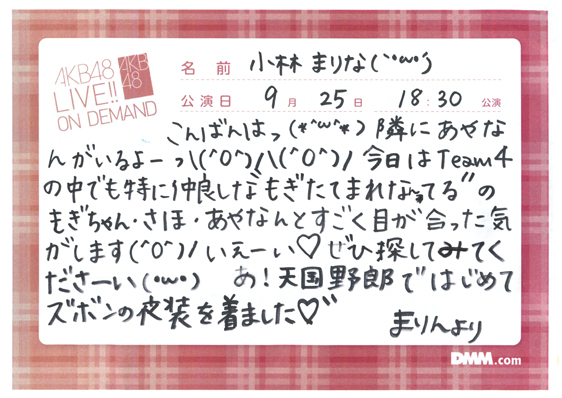 AKB48
LIVE!!
ON DEMAND
AKB
48
名前 小林まりな(`・ω・´)
公演日 9月 25日 18:30 公演
こんばんはっ(*^ω^*) 隣にあやな
んがいるよーっ\(^O^)/\(^O^)/ 今日はTeam4
の中でも特に仲良しな"もぎたてまれなってる"の
もぎちゃん・さほ・あやなんとすごく目が合った気
がします(^O^)/ いぇーい♡ ぜひ探してみてく
ださーい(・ω・) あ!天国野郎ではじめて
ズボンの衣装を着ました♡"
まりんより
DMM.com